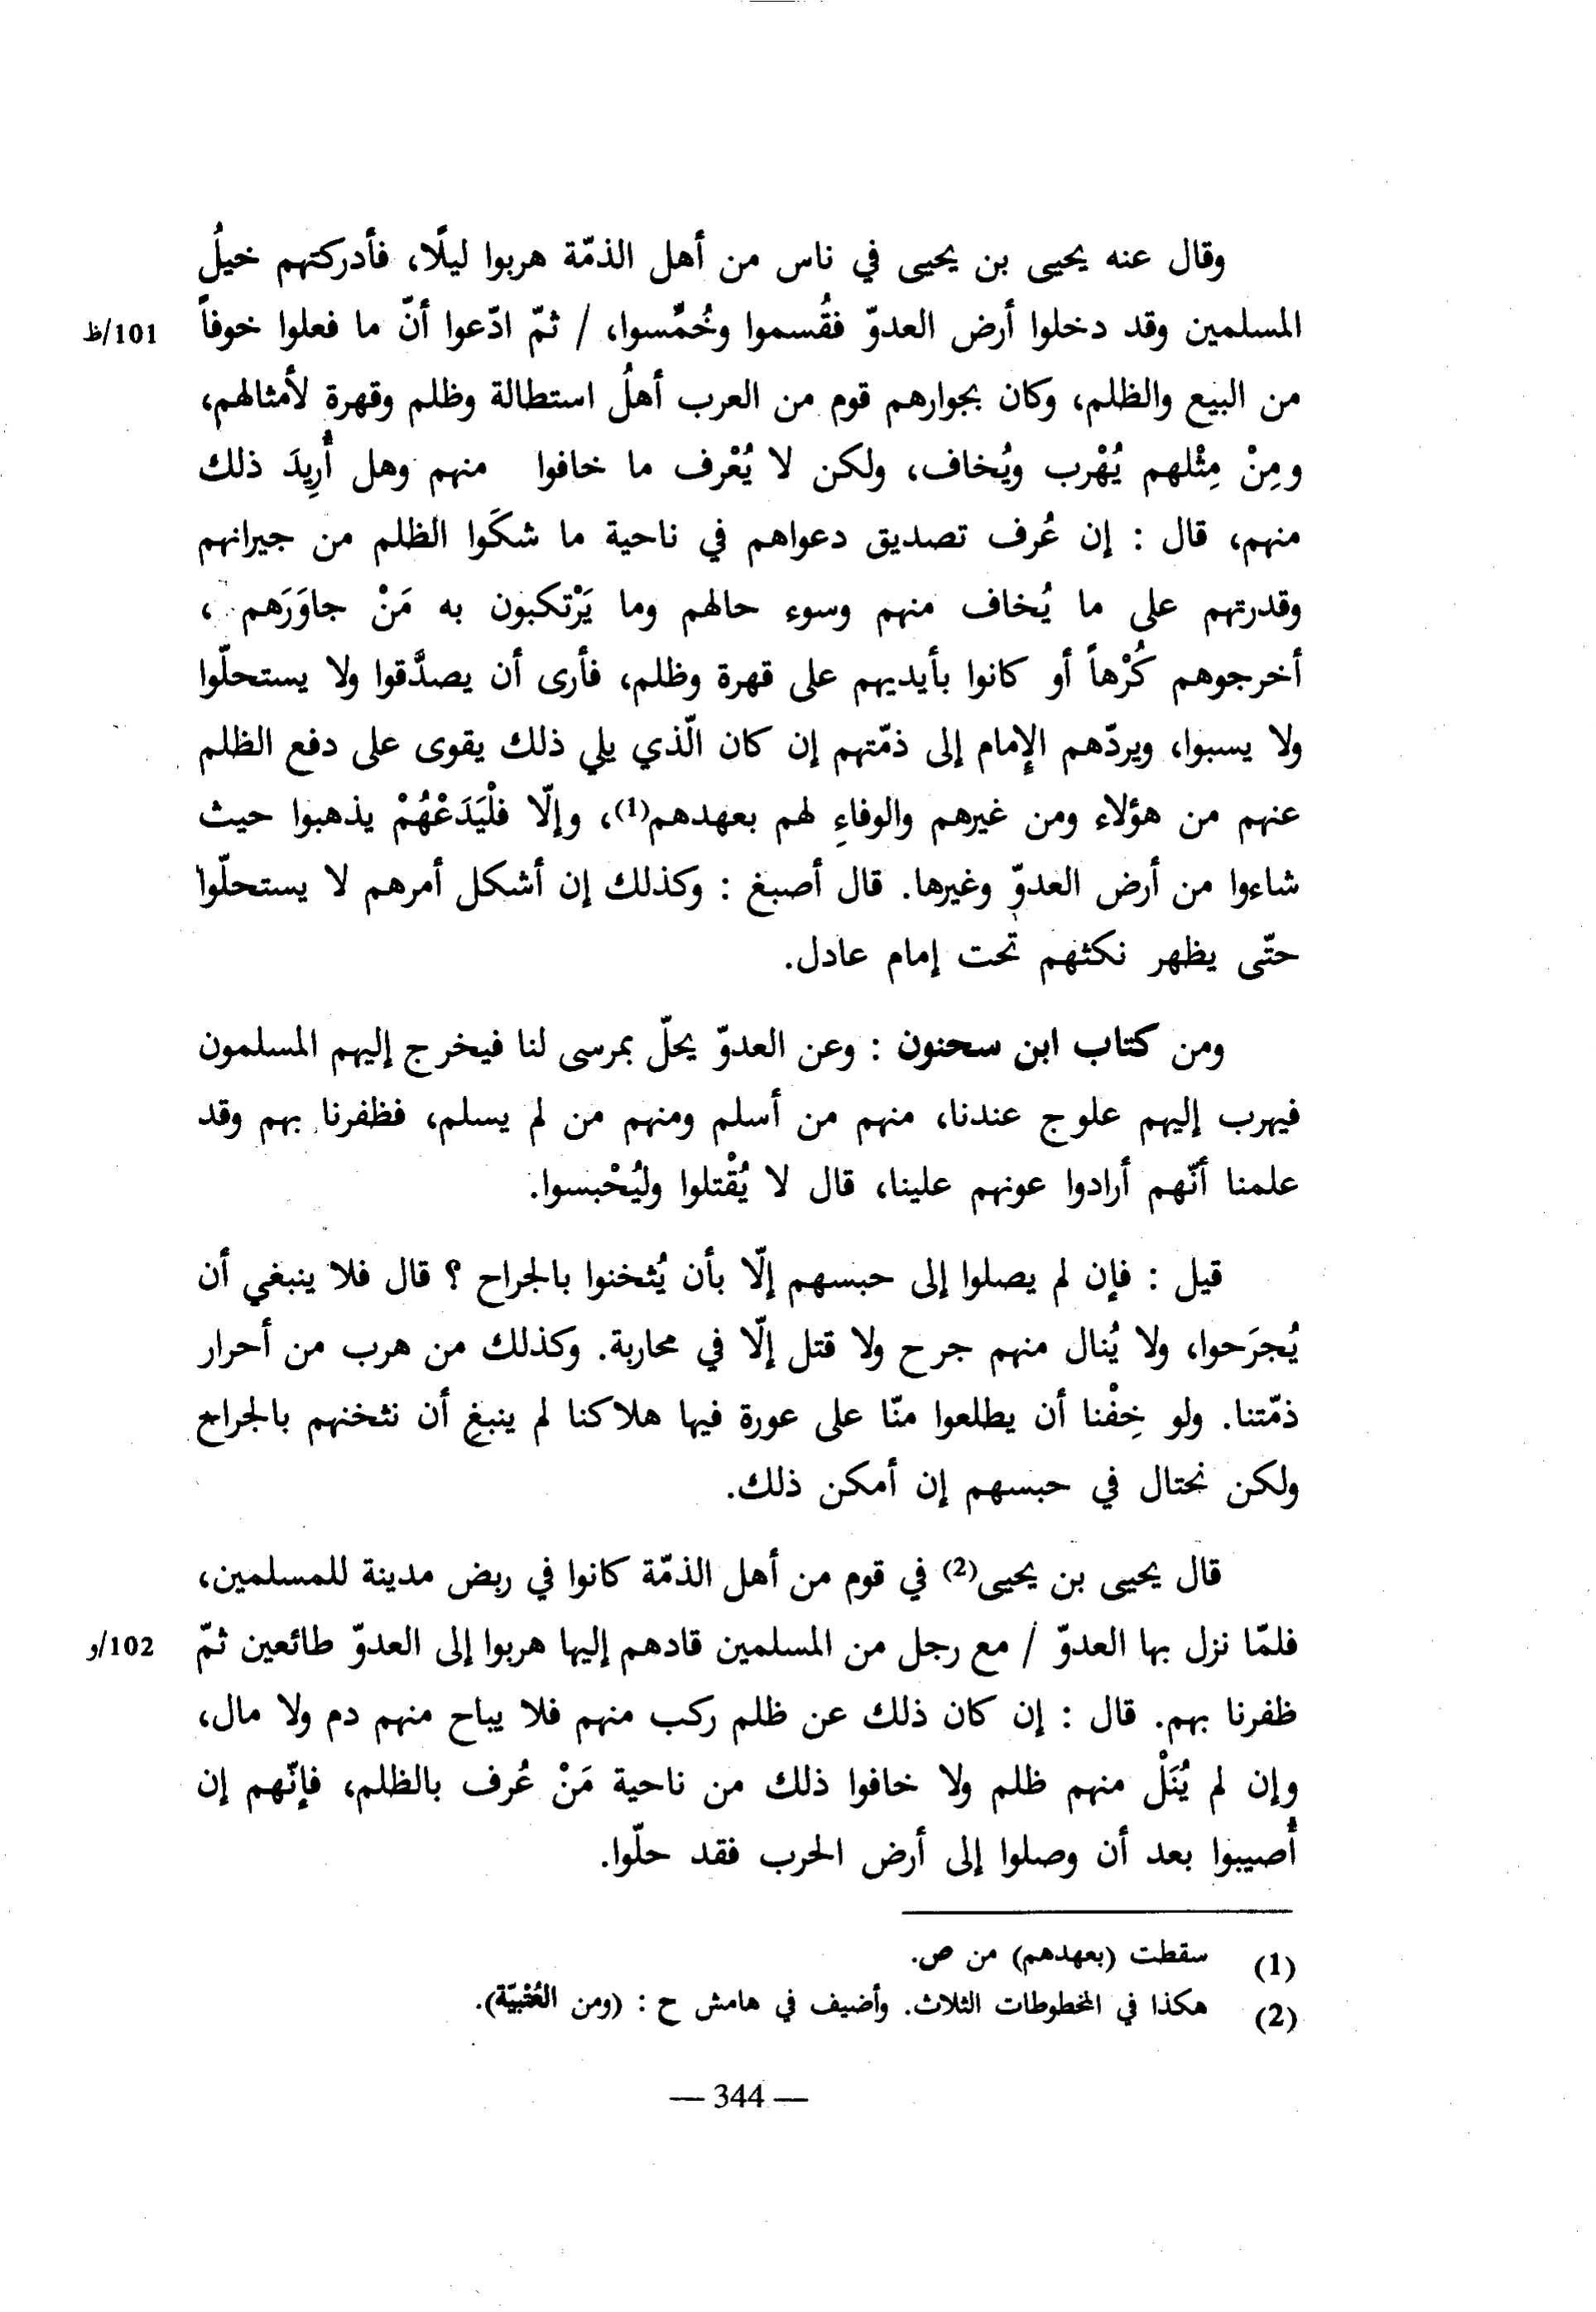 وقال عنه يحيى بن يحيى في ناس من أهل الذمّة هربوا ليلًا، فأدركتهم خيلُ
المسلمين وقد دخلوا أرض العدوّ فقُسموا وخُمِّسوا، / ثمّ ادّعوا أنّ ما فعلوا خوفاً 101/ظ
من البيع والظلم، وكان بجوارهم قوم من العرب أهلُ استطالة وظلم وقهرة لأمثالهم،
ومِنْ مِثْلهم يُهْرب ويُخاف، ولكن لا يُعْرف ما خافوا منهم وهل أُرِيدَ ذلك
منهم، قال : إن عُرف تصديق دعواهم في ناحية ما شكَوا الظلم من جيرانهم
وقدرتهم على ما يُخاف منهم وسوء حالهم وما يَرْتكبون به مَنْ جاوَرَهم ،
أخرجوهم كُرْهاً أو كانوا بأيديهم على قهرة وظلم، فأرى أن يصدَّقوا ولا يستحلّوا
ولا يسبوا، ويردّهم الإمام إلى ذمّتهم إن كان الّذي يلي ذلك يقوى على دفع الظلم
عنهم من هؤلاء ومن غيرهم والوفاءِ لهم بعهدهم(1)، وإلّا فلْيَدَعْهُمْ يذهبوا حيث
شاءوا من أرض العدوّ وغيرها. قال أصبغ : وكذلك إن أشكل أمرهم لا يستحلّوا
حتّى يظهر نكثهم تحت إمام عادل.
ومن كتاب ابن سحنون : وعن العدوّ يحلّ بمرسى لنا فيخرج إليهم المسلمون
فيهرب إليهم علوج عندنا، منهم من أسلم ومنهم من لم يسلم، فظفرنا بهم وقد
علمنا أنّهم أرادوا عونهم علينا، قال لا يُقْتلوا وليُحْبسوا.
قيل : فإن لم يصلوا إلى حبسهم إلّا بأن يُثخنوا بالجراح ؟ قال فلا ينبغي أن
يُجرَحوا، ولا يُنال منهم جرح ولا قتل إلّا في محاربة. وكذلك من هرب من أحرار
ذمّتنا. ولو خِفْنا أن يطلعوا منّا على عورة فيها هلاكنا لم ينبغِ أن نثخنهم بالجراح
ولكن نحتال في حبسهم إن أمكن ذلك.
قال يحيى بن يحيى(2) في قوم من أهل الذمّة كانوا في ربض مدينة للمسلمين،
فلمّا نزل بها العدوّ / مع رجل من المسلمين قادهم إليها هربوا إلى العدوّ طائعين ثمّ 102/و
ظفرنا بهم. قال : إن كان ذلك عن ظلم ركب منهم فلا يباح منهم دم ولا مال،
وإن لم يُنَلْ منهم ظلم ولا خافوا ذلك من ناحية مَنْ عُرف بالظلم، فإنّهم إن
أُصيبوا بعد أن وصلوا إلى أرض الحرب فقد حلّوا.
(1) سقطت (بعهدهم) من ص.
(2) هكذا في المخطوطات الثلاث. وأضيف في هامش ح : (ومن العُتْبيّة).
— 344 —